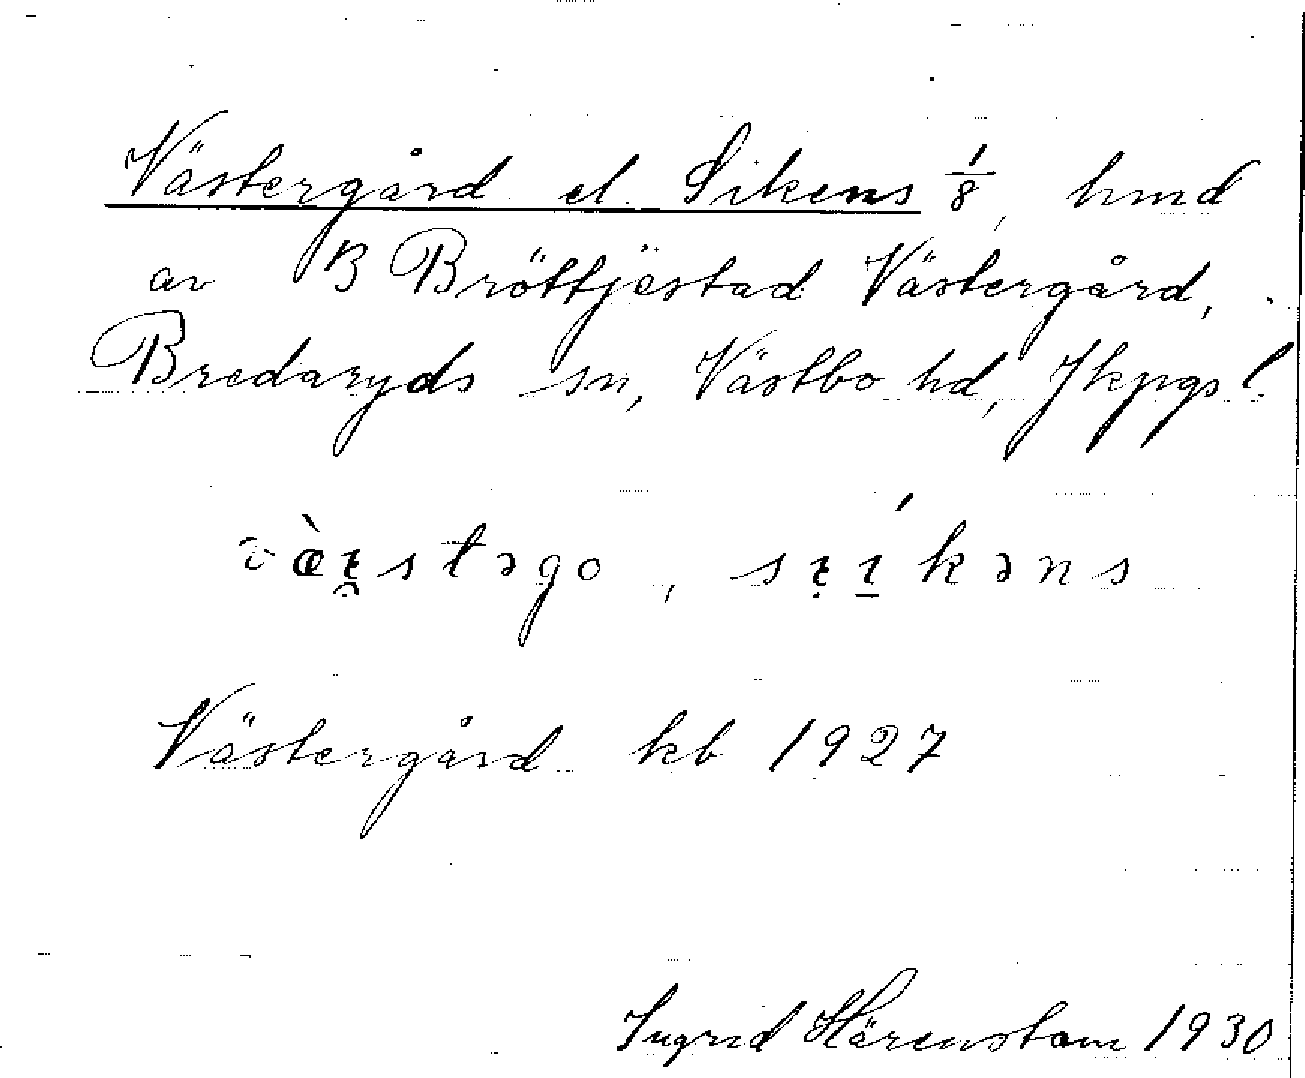 Västergård el. Sikens 1/8, hmd
av B Bröttjestad Västergård,
Bredaryds sn, Västbo hd, Jkpgs l.
sı̣í̱kəns
Västergård kb 1927
Ingrid Härenstam 1930